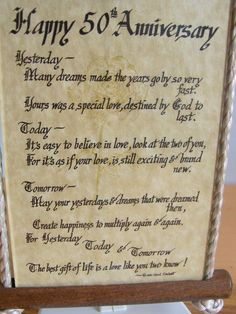 Happy 50th Anniversary
Yesterday —
Many dreams made the years go by so very
fast.
Yours was a special love, destined by God to
last.
Today —
It's easy to believe in love, look at the two of you,
For it's as if your love, is still exciting & brand
new.
Tomorrow —
May your yesterdays & dreams that were dreamed
then,
Create happiness to multiply again & again,
For Yesterday
Today & Tomorrow
The best gift of life is a love like you two know!